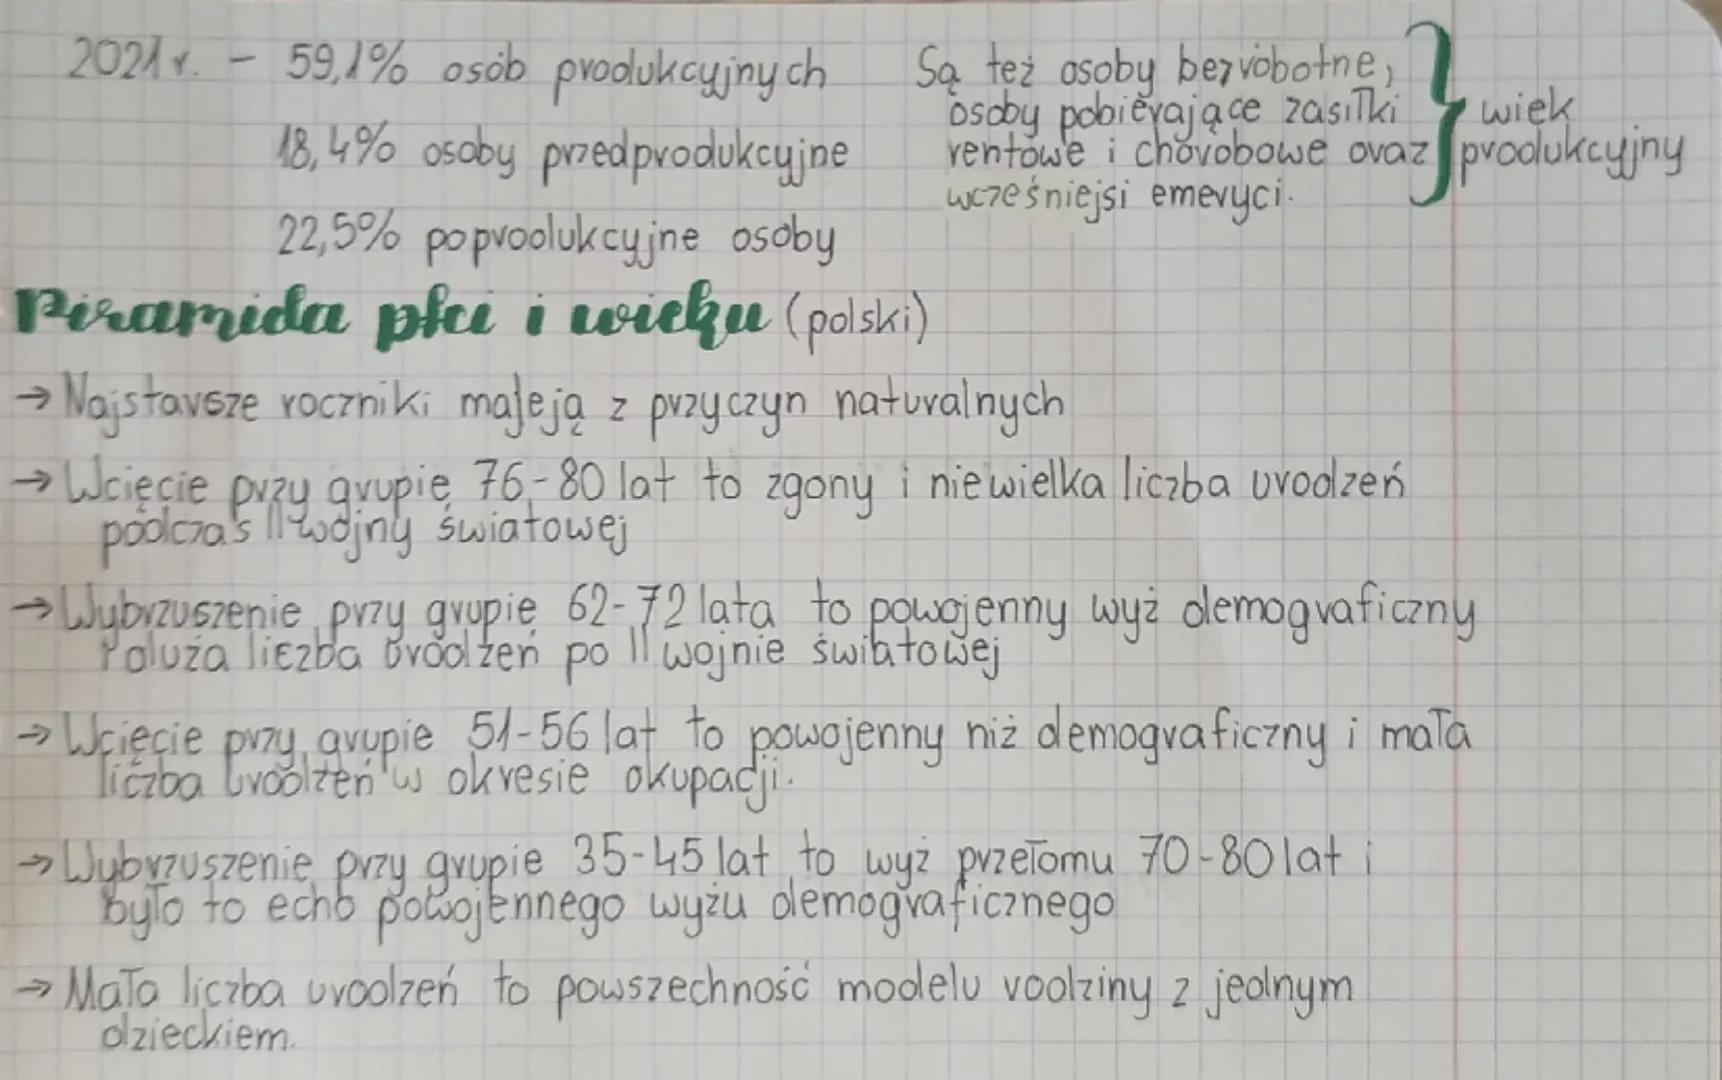 2021 r. - 59,1% osób produkcyjnych
18,4% osoby przedprodukcyjne
22,5% poprodukcyjne osoby
Są też osoby bezrobotne,
osoby pobierające zasiłki
rentowe i chorobowe oraz
wcześniejsi emeryci.
wiek
produkcyjny
Piramida płci i wieku (polski)
→ Najstarsze roczniki maleją z przyczyn naturalnych
→ Wcięcie przy grupie 76-80 lat to zgony i niewielka liczba urodzeń
podczas II wojny światowej
→ Wybrzuszenie przy grupie 62-72 lata to powojenny wyż demograficzny
i duża liczba urodzeń po II wojnie światowej
→ Wcięcie przy grupie 51-56 lat to powojenny niż demograficzny i mała
liczba urodzeń w okresie okupacji.
→ Wybrzuszenie przy grupie 35-45 lat to wyż przełomu 70-80 lat i
było to echo powojennego wyżu demograficznego
→ Mała liczba urodzeń to powszechność modelu rodziny z jednym
dzieckiem.